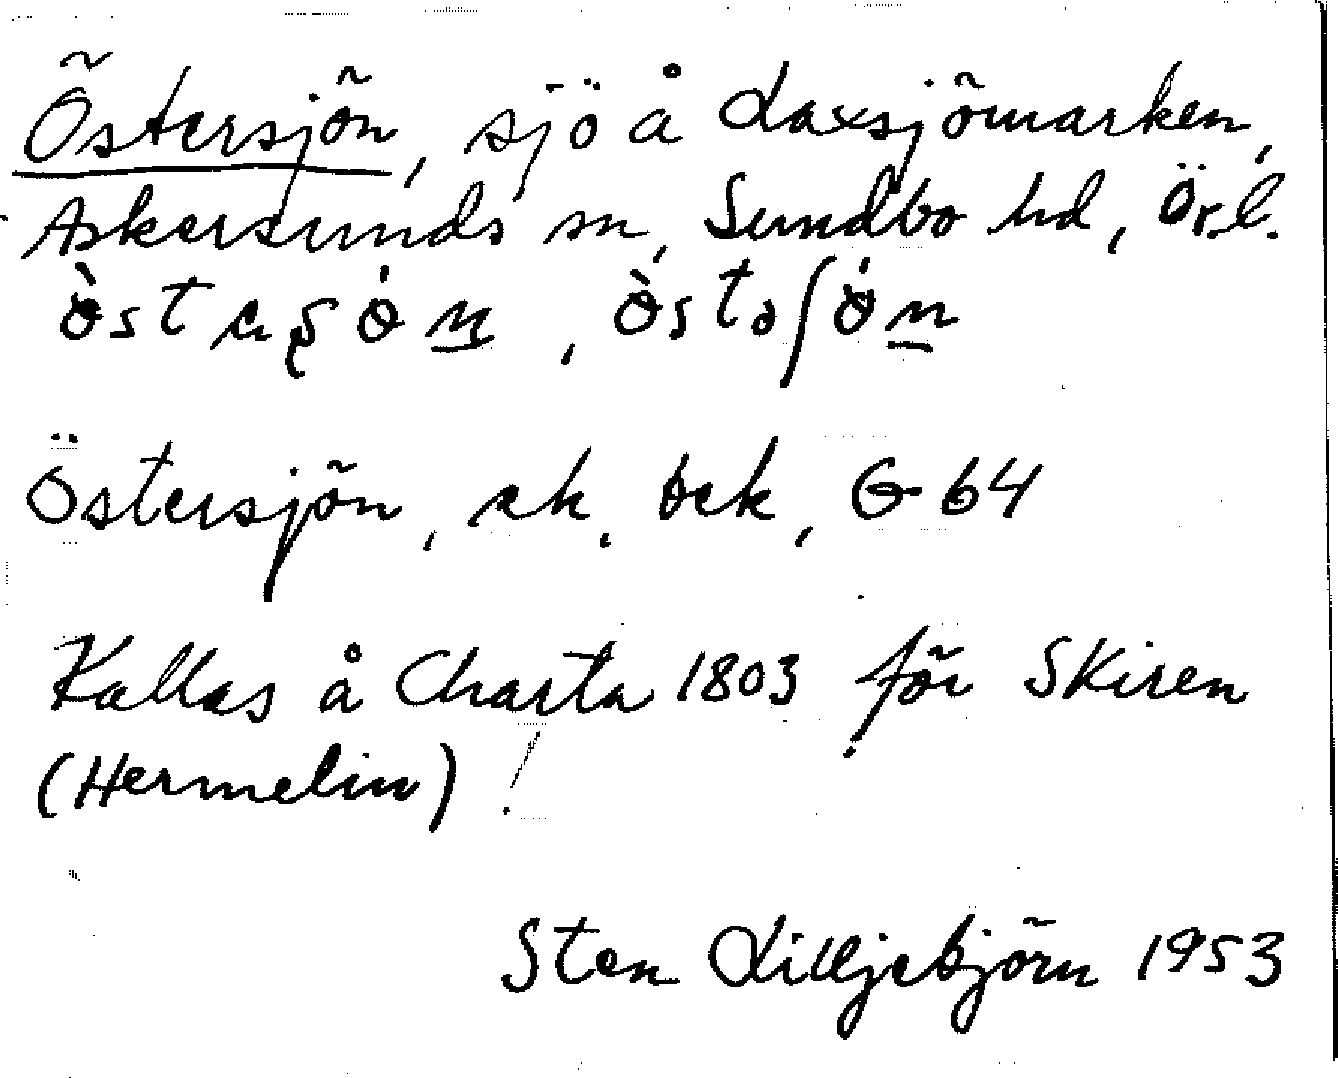 Östersjön, sjö å Laxsjömarken,
Askersunds sn, Sundbo hd, Ör.l.
Östersjön, ek. bek, G 64
Kallas å Charta 1803 för Skiren
(Hermelin)!
Sten Lilljebjörn 1953